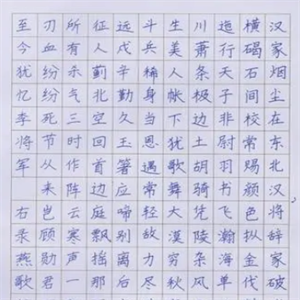 汉家烟尘在东北汉将辞家破
横碣石间校常赐颜色枞金伐
逦行天子非尉羽书飞瀚海单
川萧条极边土胡骑凭陵杂风
生美人帐下犹歌舞大漠穷秋
斗兵稀身当恩遇常轻敌力尽
远戍辛勤久玉箸应啼别离后
征人蓟北空回首边庭飘摇那
所有杀气三时作阵云寒声一
刃血纷纷死节从来岂顾勋君
至今犹忆李将军
右录燕歌